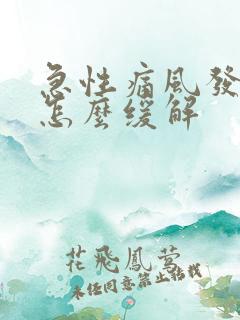 急性痛風發
怎麼緩解
花飛鳳夢
未经同意禁止转载